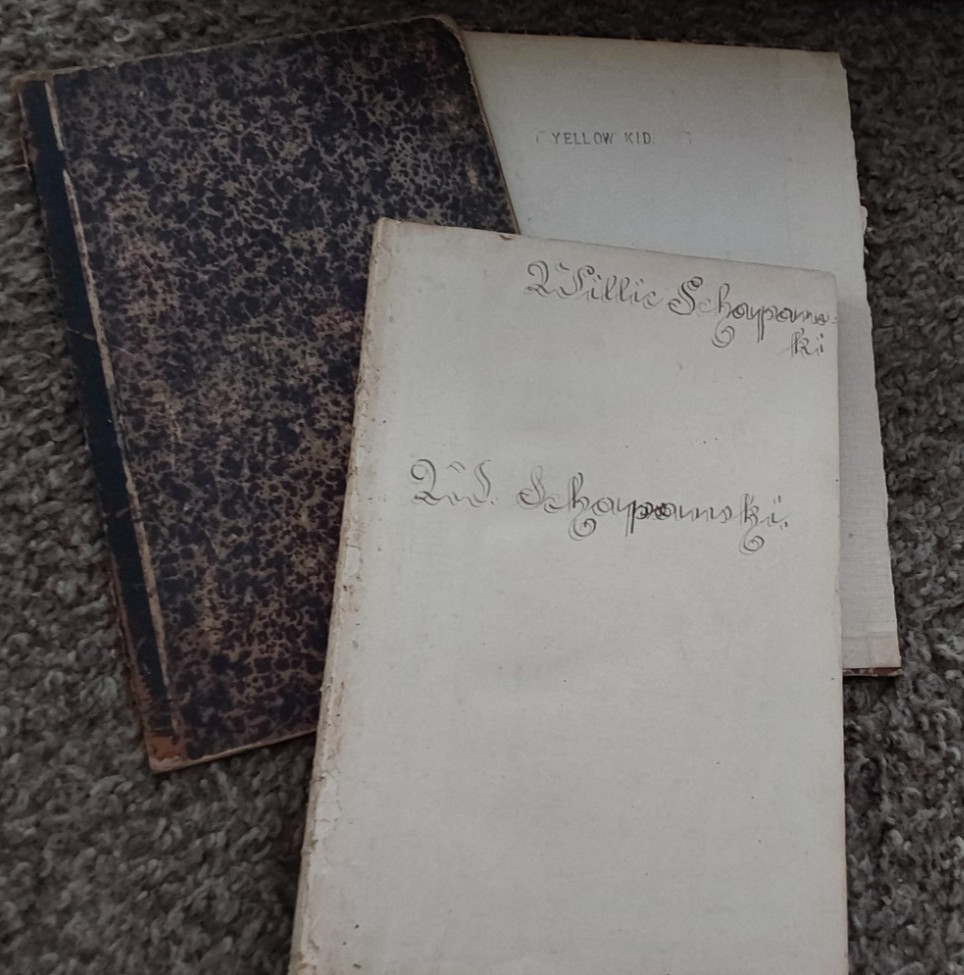 YELLOW KID.
Willie Schaypanows-
ki
Wil. Schaypanowski.